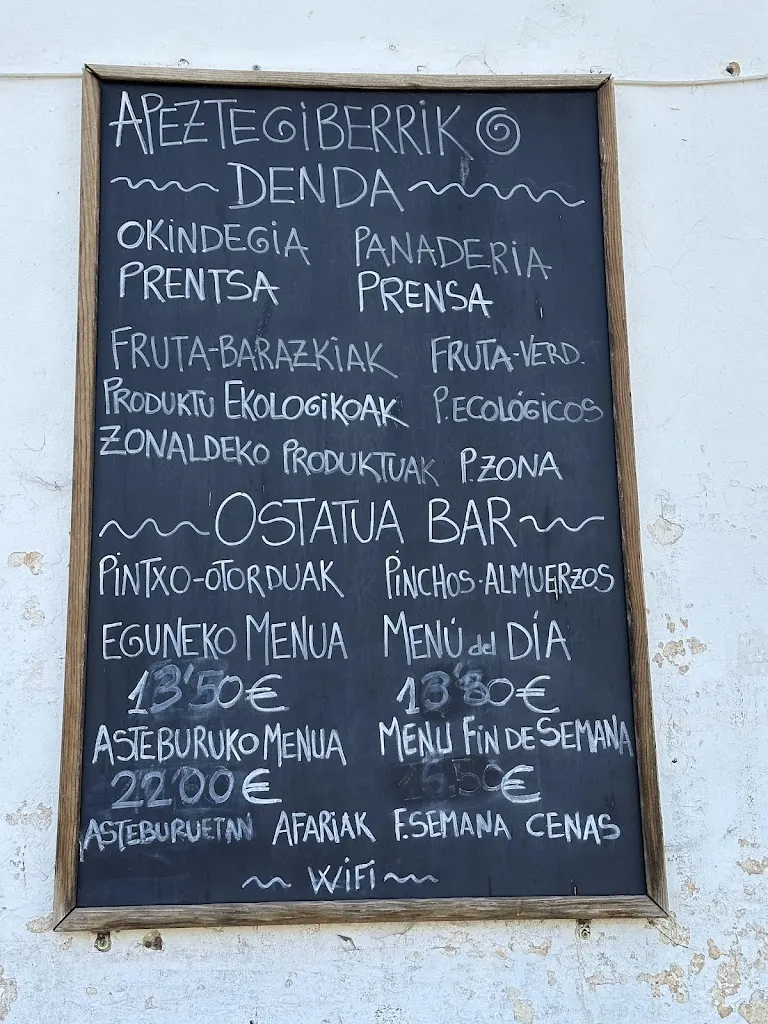 APEZTEGIBERRIK
DENDA
OKINDEGIA PANADERIA
PRENTSA PRENSA
FRUTA-BARAZKIAK FRUTA-VERD.
PRODUKTU EKOLOGIKOAK P.ECOLÓGICOS
ZONALDEKO PRODUKTUAK P.ZONA
OSTATUA BAR
PINTXO-OTORDUAK PINCHOS-ALMUERZOS
EGUNEKO MENUA MENÚ del DÍA
13'50€ €
ASTEBURUKO MENUA MENU FIN DE SEMANA
22'00€ €
ASTEBURUETAN AFARIAK F.SEMANA CENAS
WIFI